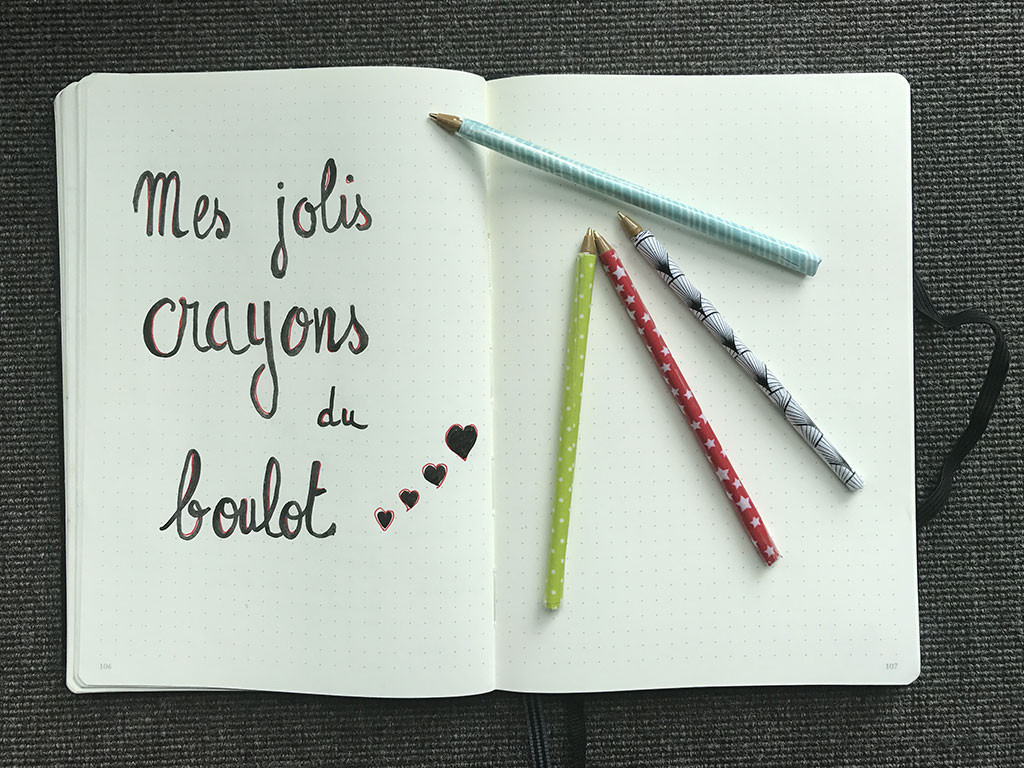 Mes jolis
crayons
du
boulot
106
107